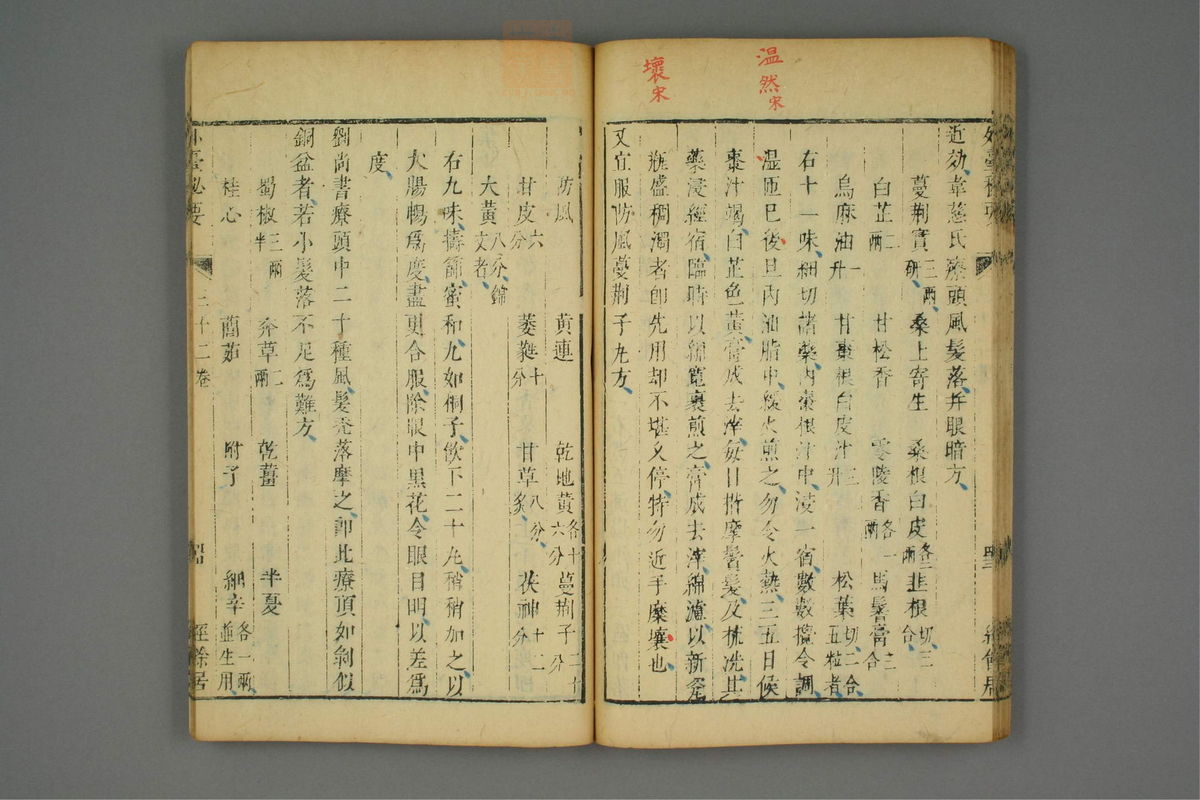 温然宋
壞宋
近効韋慈氏療頭風髮落并眼暗方
蔓荆實三兩研 桑上寄生 桑根白皮各二兩 韭根切三合
白芷二兩 甘松香 零陵香各一兩 馬鬐膏三合
烏麻油一升 甘棗根白皮汁三升 松葉切二合五粒者
右十一味細切諸藥内棗根汁中浸一宿數數攪令調
湿匝已後旦内油脂中緩火煎之勿令火熱三五日候
棗汁竭白芷色黄膏成去滓每日揩摩鬢髮及梳洗其
藥浸經宿臨時以綿寬裹煎之膏成去滓綿濾以新瓷
瓶盛稠濁者卽先用却不堪久停特勿近手糜壤也
又宜服防風蔓荆子丸方
防風 黄連 乾地黄各十六分 蔓荆子二十分
甘皮六分 萎蕤十分 甘草八分炙 茯神十二分
大黄八分錦文者
右九味擣篩蜜和丸如桐子飲下二十丸稍稍加之以
大腸暢爲度盡更合服除眼中黑花令眼目明以差爲
度
劉尚書療頭中二十種風髮禿落摩之卽此療頂如剝似
銅盆者若小髮落不足爲難方
蜀椒三兩半 莽草二兩 乾薑 半夏
桂心 䕡茹 附子 細辛各一兩並生用
外臺秘要 三十二卷 經餘居